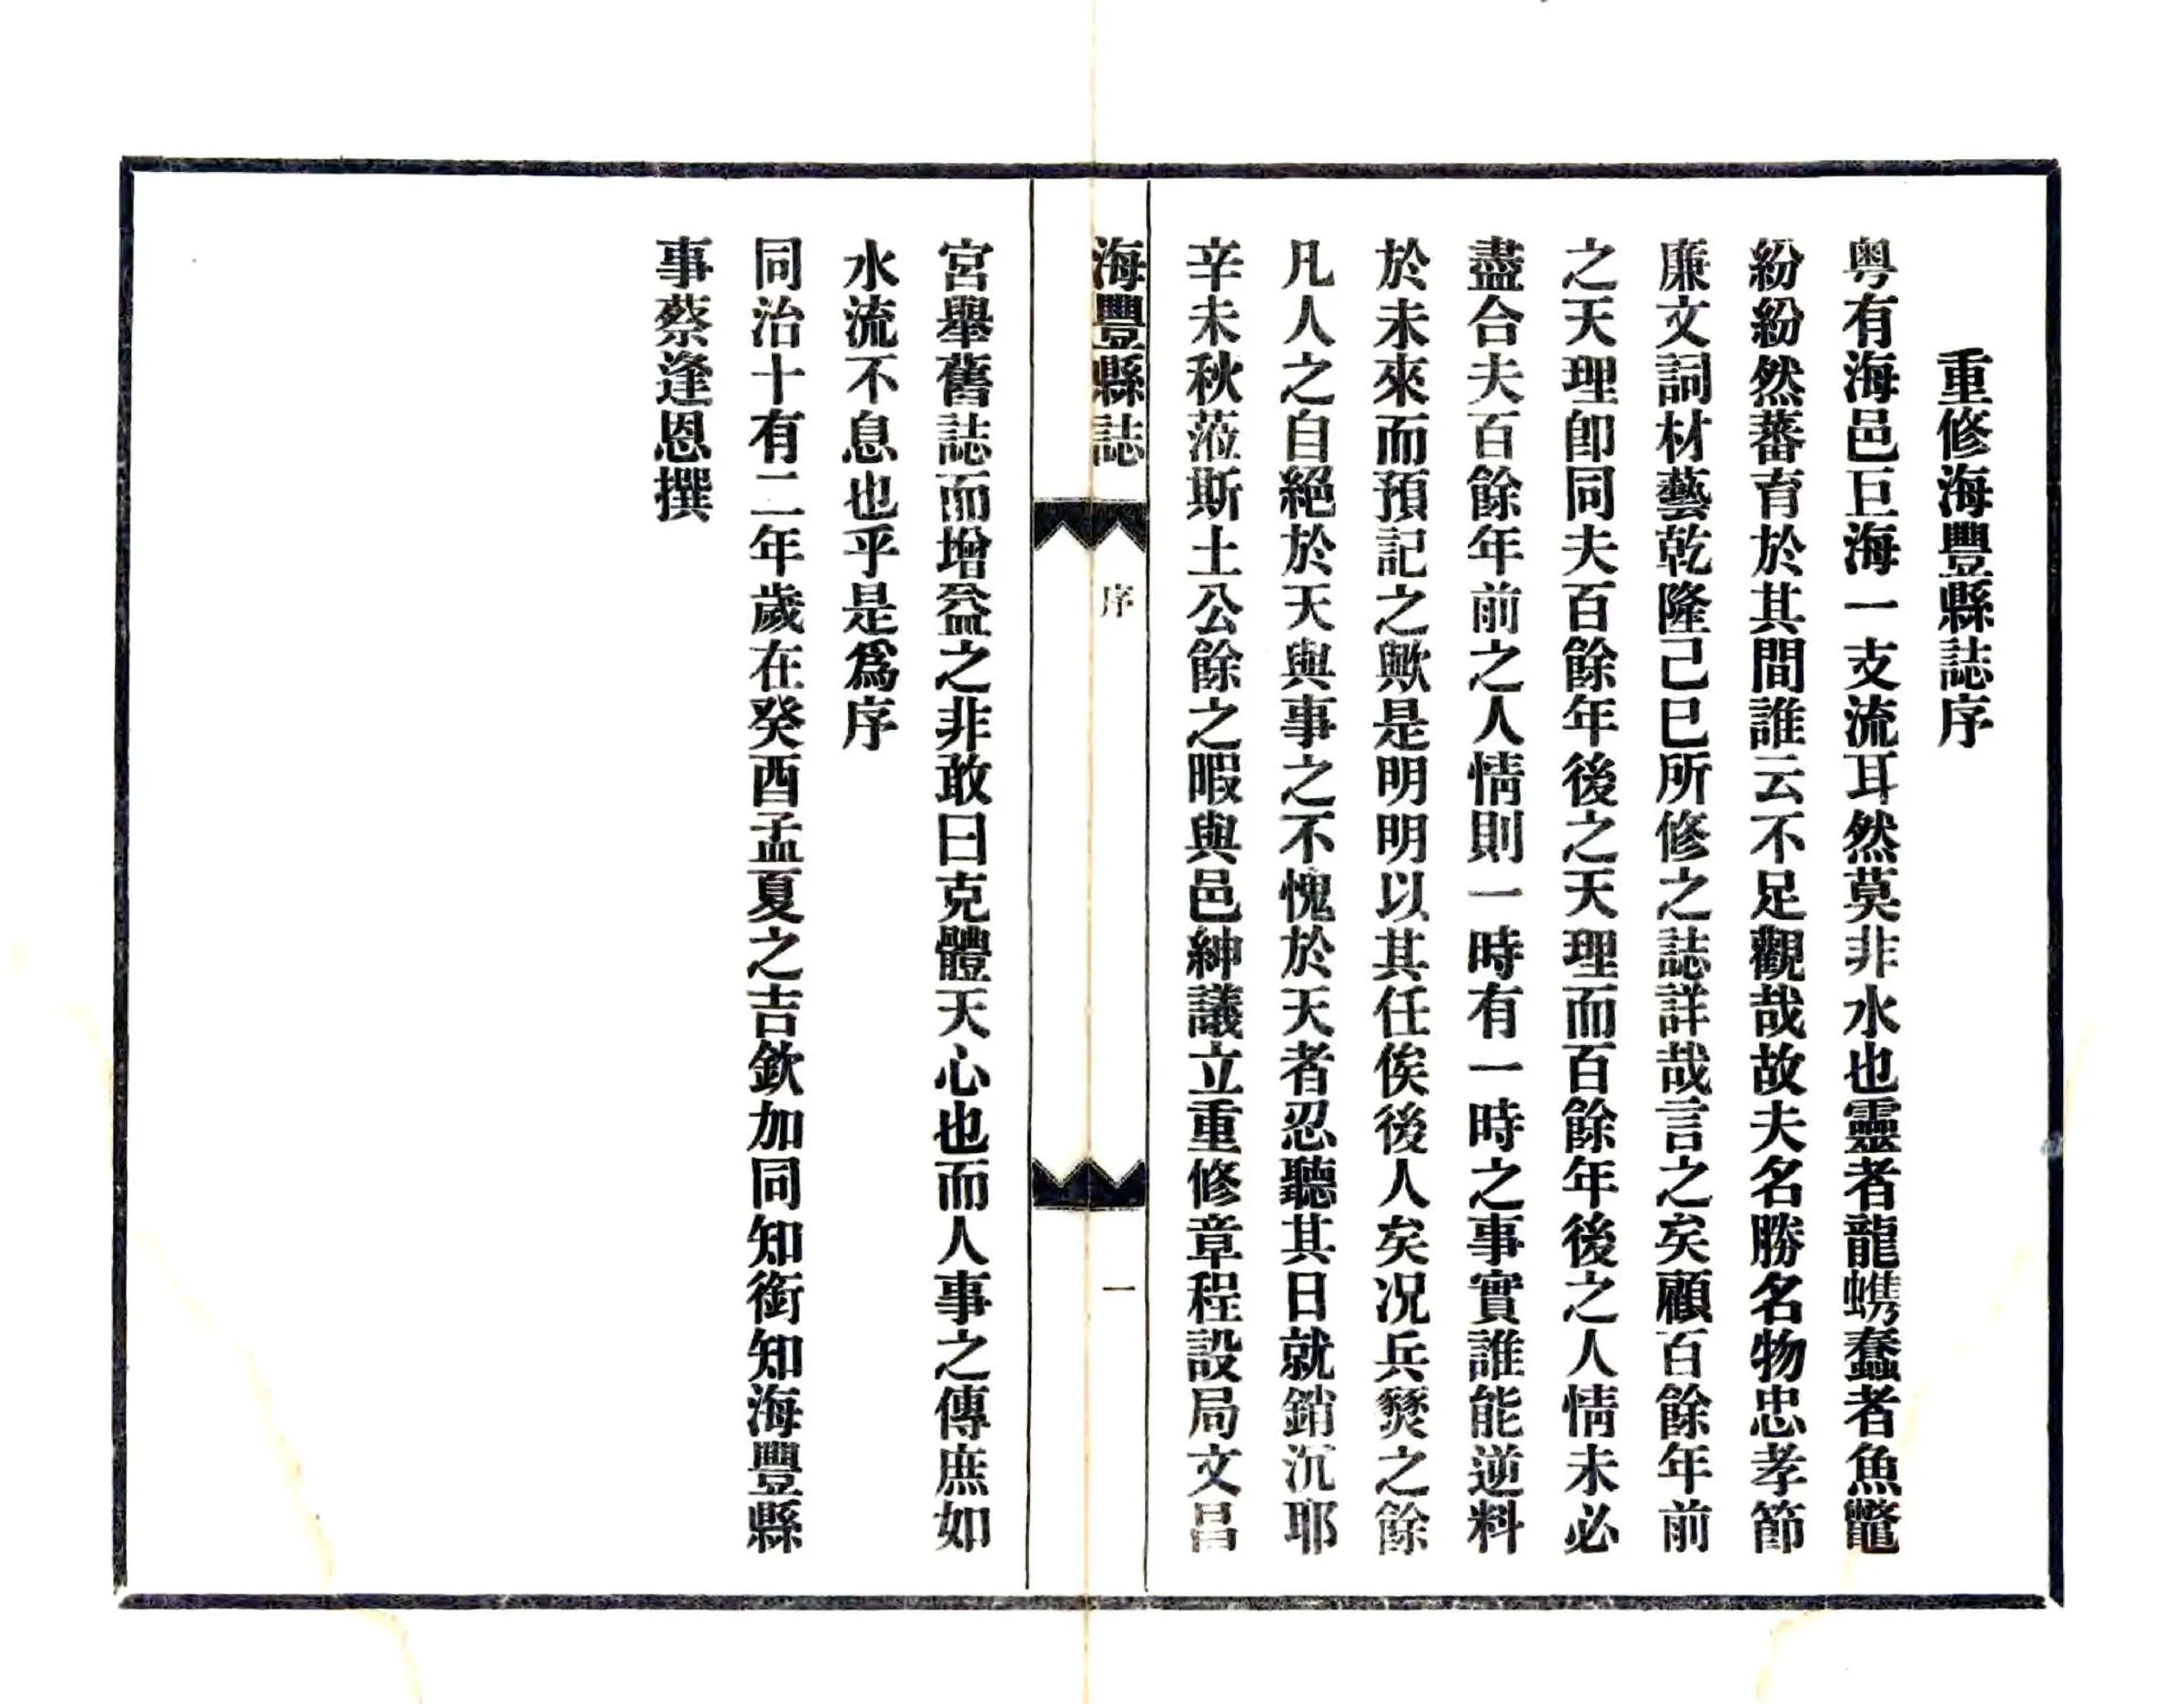 重修海豐縣誌序
粤有海邑巨海一支流耳然莫非水也靈者龍蠵蠢者魚鼈
紛紛然蕃育於其間誰云不足觀哉故夫名勝名物忠孝節
廉文詞材藝乾隆己巳所修之誌詳哉言之矣顧百餘年前
之天理卽同夫百餘年後之天理而百餘年後之人情未必
盡合夫百餘年前之人情則一時有一時之事實誰能逆料
於未來而預記之歟是明明以其任俟後人矣况兵燹之餘
凡人之自絕於天與事之不愧於天者忍聽其日就銷沉耶
辛未秋蒞斯土公餘之暇與邑紳議立重修章程設局文昌
海豐縣誌
序
一
宮舉舊誌而增益之非敢曰克體天心也而人事之傳庶如
水流不息也乎是爲序
同治十有二年歲在癸酉孟夏之吉欽加同知銜知海豐縣
事蔡逢恩撰